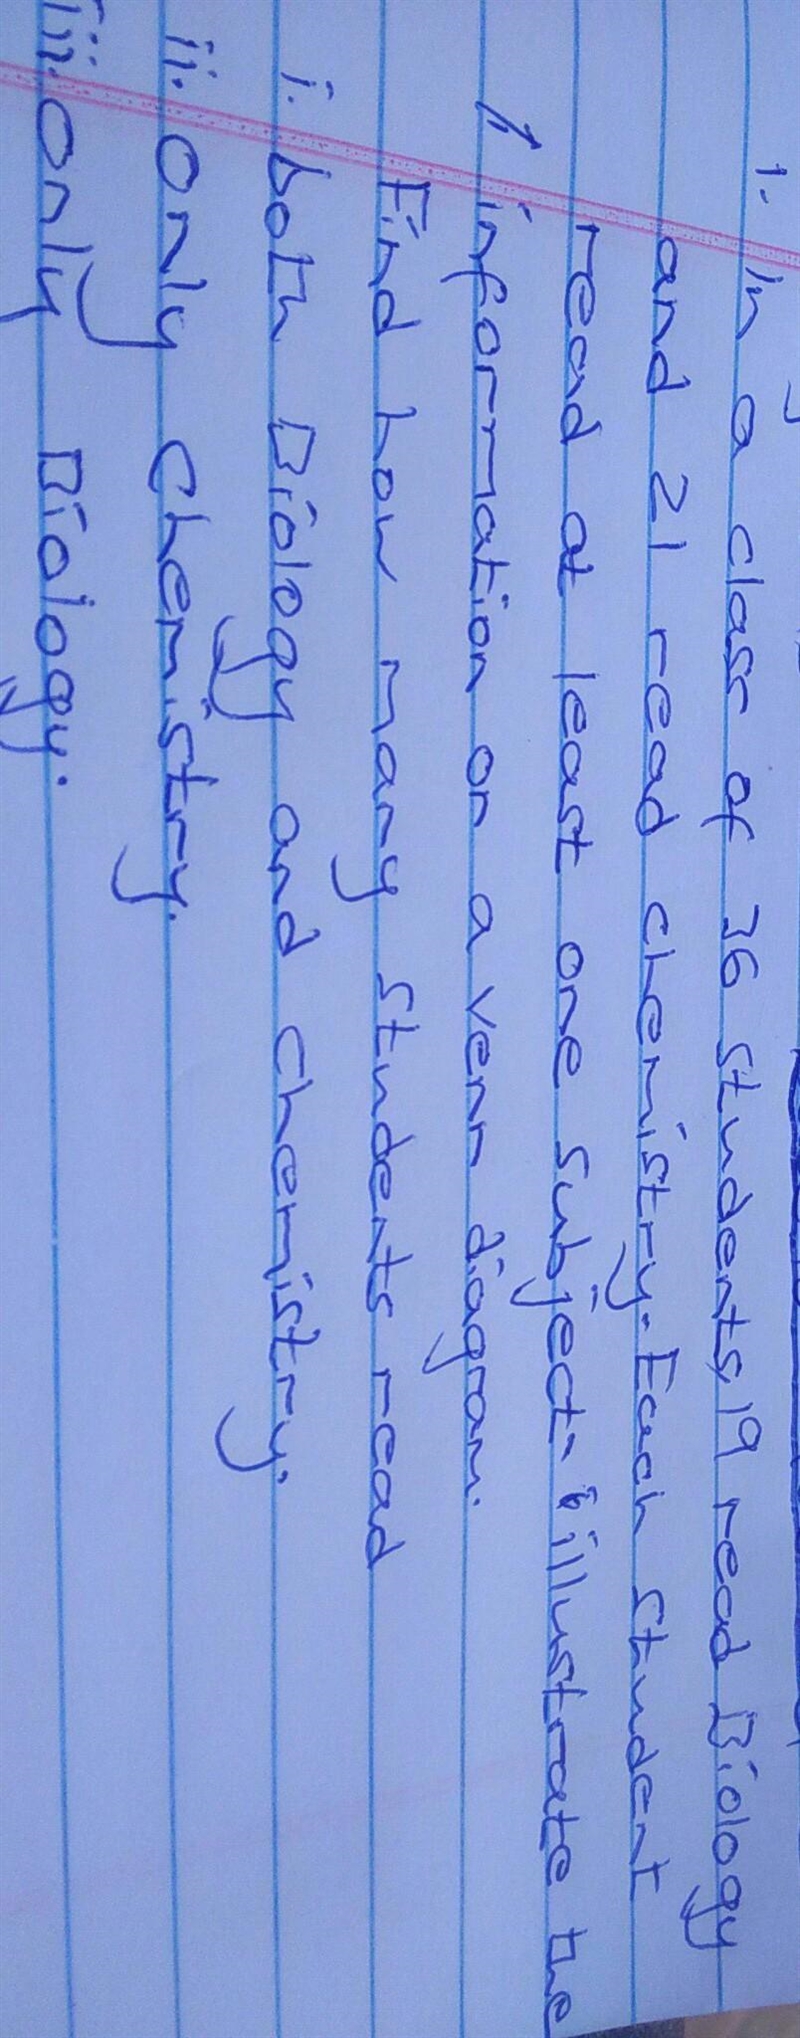 1. In a class of 36 students, 19 read Biology
and 21 read chemistry. Each student
read at least one subject. illustrate the
information on a venn diagram.
Find how many students read
i. both Biology and chemistry.
ii. only chemistry.
iii. only Biology.